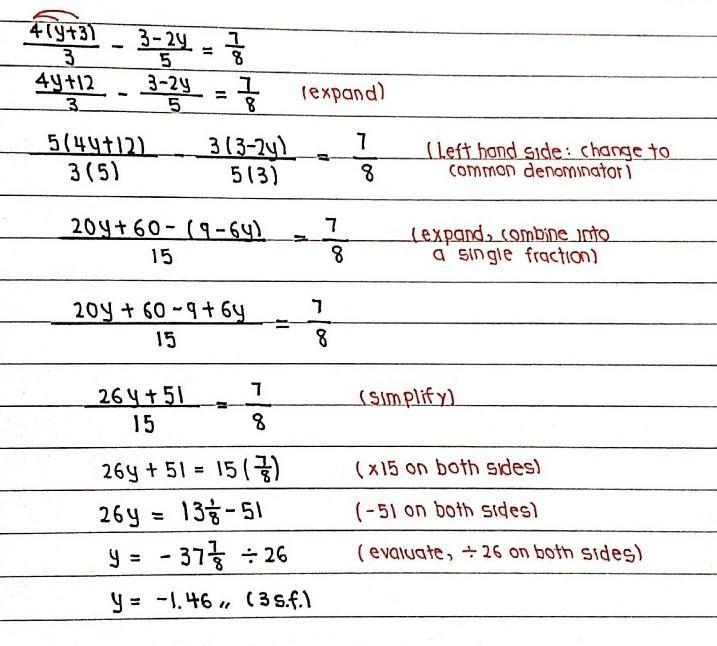 4(y+3)/3 - 3-2y/5 = 7/8
4y+12/3 - 3-2y/5 = 7/8 (expand)
5(4y+12)/3(5) - 3(3-2y)/5(3) = 7/8 (left hand side: change to
common denominator)
20y+60-(9-6y)/15 = 7/8 (expand, combine into
a single fraction)
20y+60-9+6y/15 = 7/8
26y+51/15 = 7/8 (simplify)
26y+51 = 15(7/8) (×15 on both sides)
26y = 13 1/8 - 51 (-51 on both sides)
y = -37 7/8 ÷ 26 (evaluate, ÷26 on both sides)
y = -1.46 ,, (3 s.f.)